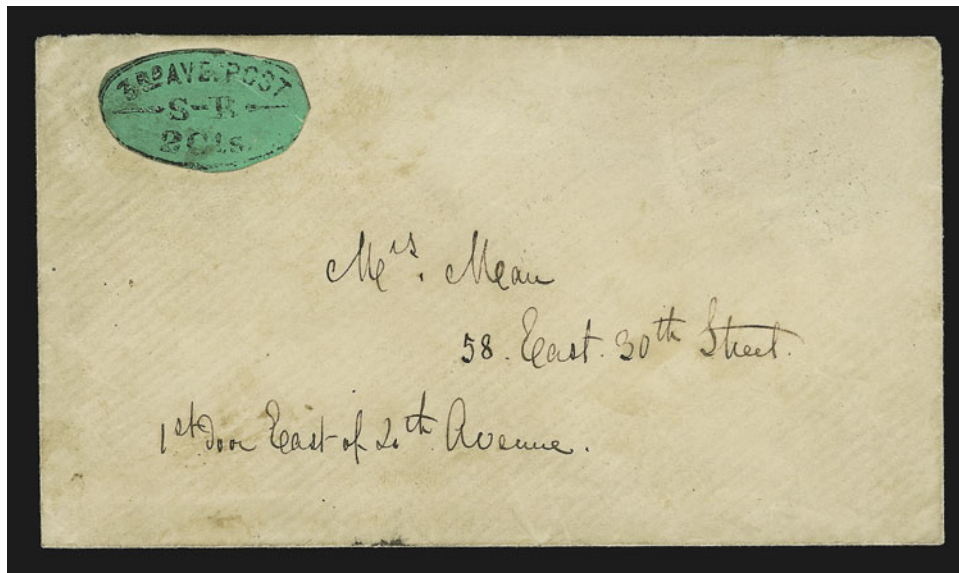 3RD AVE. POST
S–R
2 Cts.
Mrs. Mean
58. East. 30th Street.
1st door East of 20th Avenue.